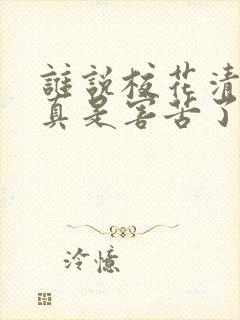 誰說校花清
真是害苦了
冷憶